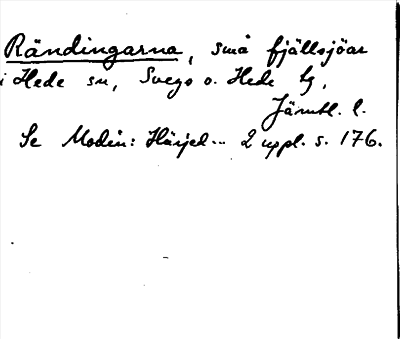 Rändingarna, små fjällsjöar
i Hede sn, Svegs o. Hede tg,
Jämtl. l.
Se Modin: Härjed... 2 uppl. s. 176.